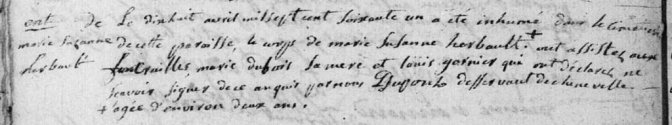 ent de Le dixhuit avril mil sept cent soixante un a été inhumé dans le Cimetiere
marie Suzanne de cette paroisse, le corps de marie Susanne herbault + ont assistez aux
herbault funerailles, marie dubois sa mere et loüis garnier qui ont déclarez ne
scavoir signer de ce enquis par nous deffervant
+ agée d'environ deux ans.